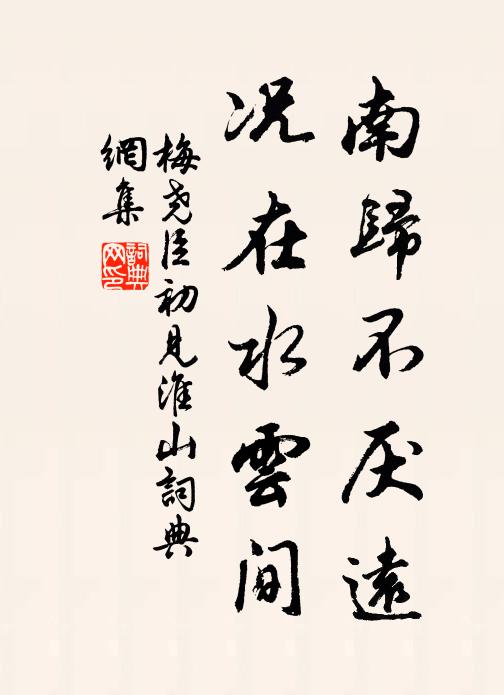 南歸不厌遠
况在水雲間
梅尧臣初見淮山詞典
網集
詞典
网印